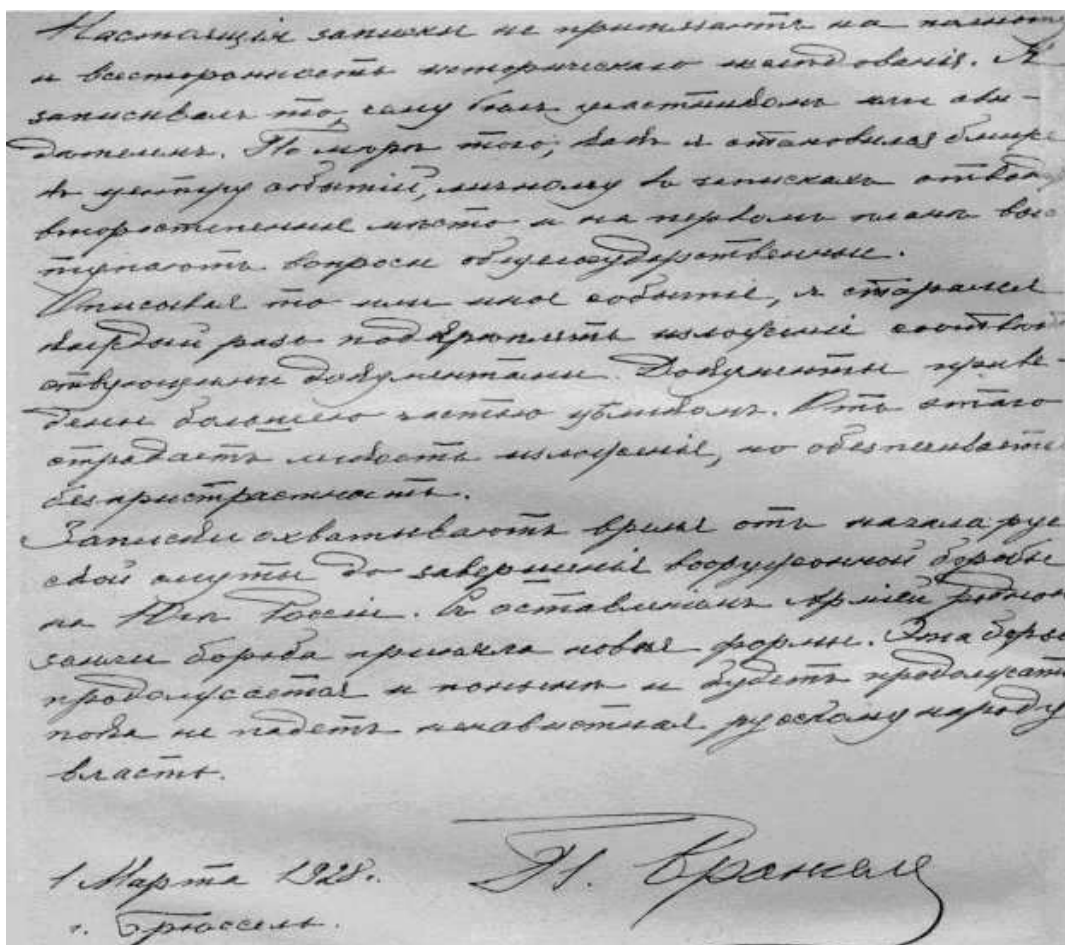 Настоящія записки не притязаютъ на полноту
и всесторонность историческаго изслѣдованія. Я
записывалъ то, чему былъ участникомъ или оче-
По мѣрѣ того, какъ я становился ближе
къ центру событій, личному въ запискахъ отвед
второстепенное мѣсто и на первомъ планѣ выс
тупаютъ вопросы общегосударственные.
Описывая то или иное событіе, я старался
каждый разъ подкрѣплять изложеніе соотвѣт
ствующими документами. Документы приве-
дены большею частью цѣликомъ. Отъ этого
страдаетъ изложенія, но обезпечивается
безпристрастность.
Записки охватываютъ время отъ начала рус
ской смуты до завершенія вооруженной борьбы
на Югѣ Россіи. Съ оставленіемъ Арміей родной
земли борьба приняла новыя формы. Эта борьба
продолжается и понынѣ и будетъ продолжать
пока не падетъ ненавистная русскому народу
власть.
1 Марта 1928.
г. Брюссель.
П. Врангель